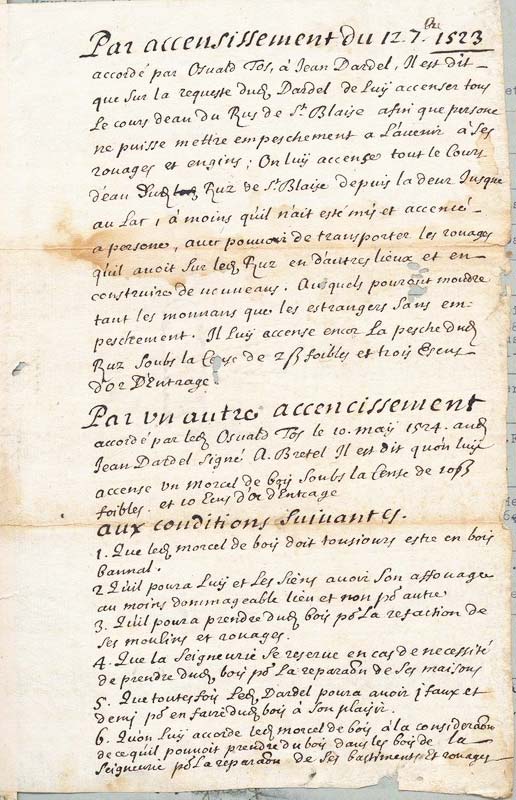 Par accensissement du 12. 7bre 1523
accordé par Osuald Tos, à Jean Dardel, Il est dit
que sur la requeste dud. Dardel de Luÿ accenser tous
Le cours deau du Rus de St. Blaise afin que persone
ne puisse mettre empeschement a Lavenir à ses
rouages et engins; On luÿ accense tout le Cours
d'eau Dud. Ruz de St. Blaise depuis la deur Jusque
au Lac, à moins qu'il n'ait esté mis et accencé
a persone, avec pouvoir de transporter les rouages
qu'il avoit sur led. Ruz en d'autres lieux et en
construire de nouveaux. Ausquels pouront moudre
tant les monnans que les estrangers sans em=
peschement. Il Luÿ accense encor La pesche dud.
Ruz soubs la Cense de 2ß foibles et trois Escus
d'or D'Entrage
Par un autre accencissement
accordé par led. Osuald Tos le 10. maÿ 1524. aud.
Jean Dardel signé A. Bretel Il est dit qu'on luÿ
accense un Morcel de boÿ soubs la Cense de 10ß
foibles. et 10 Ecus d'or d'Entrage
aux conditions suivantes.
1. Que led. morcel de bois doit tousiours estre en bois
bannal.
2 Qu'il poura Luÿ et Les siens avoir son affouage
au moins dommageable lieu et non pr. autre
3. Qu'il poura prendre dud. bois pr. La refaction de
ses moulins et rouages.
4. Que la Seigneurie se reserve en cas de necessité
de prendre dud. bois pr. La reparaon de ses maisons
5. Que toutesfois Led. Dardel poura avoir 1 faux et
demi pr. en faire dud. bois à son plaisir.
6. Qu'on Luÿ accorde led. morcel de bois à la consideraon
de ce qu'il pouvoit prendre du bois dans les bois de la
Seigneurie pr. La reparaon de ses bastiments et rouages